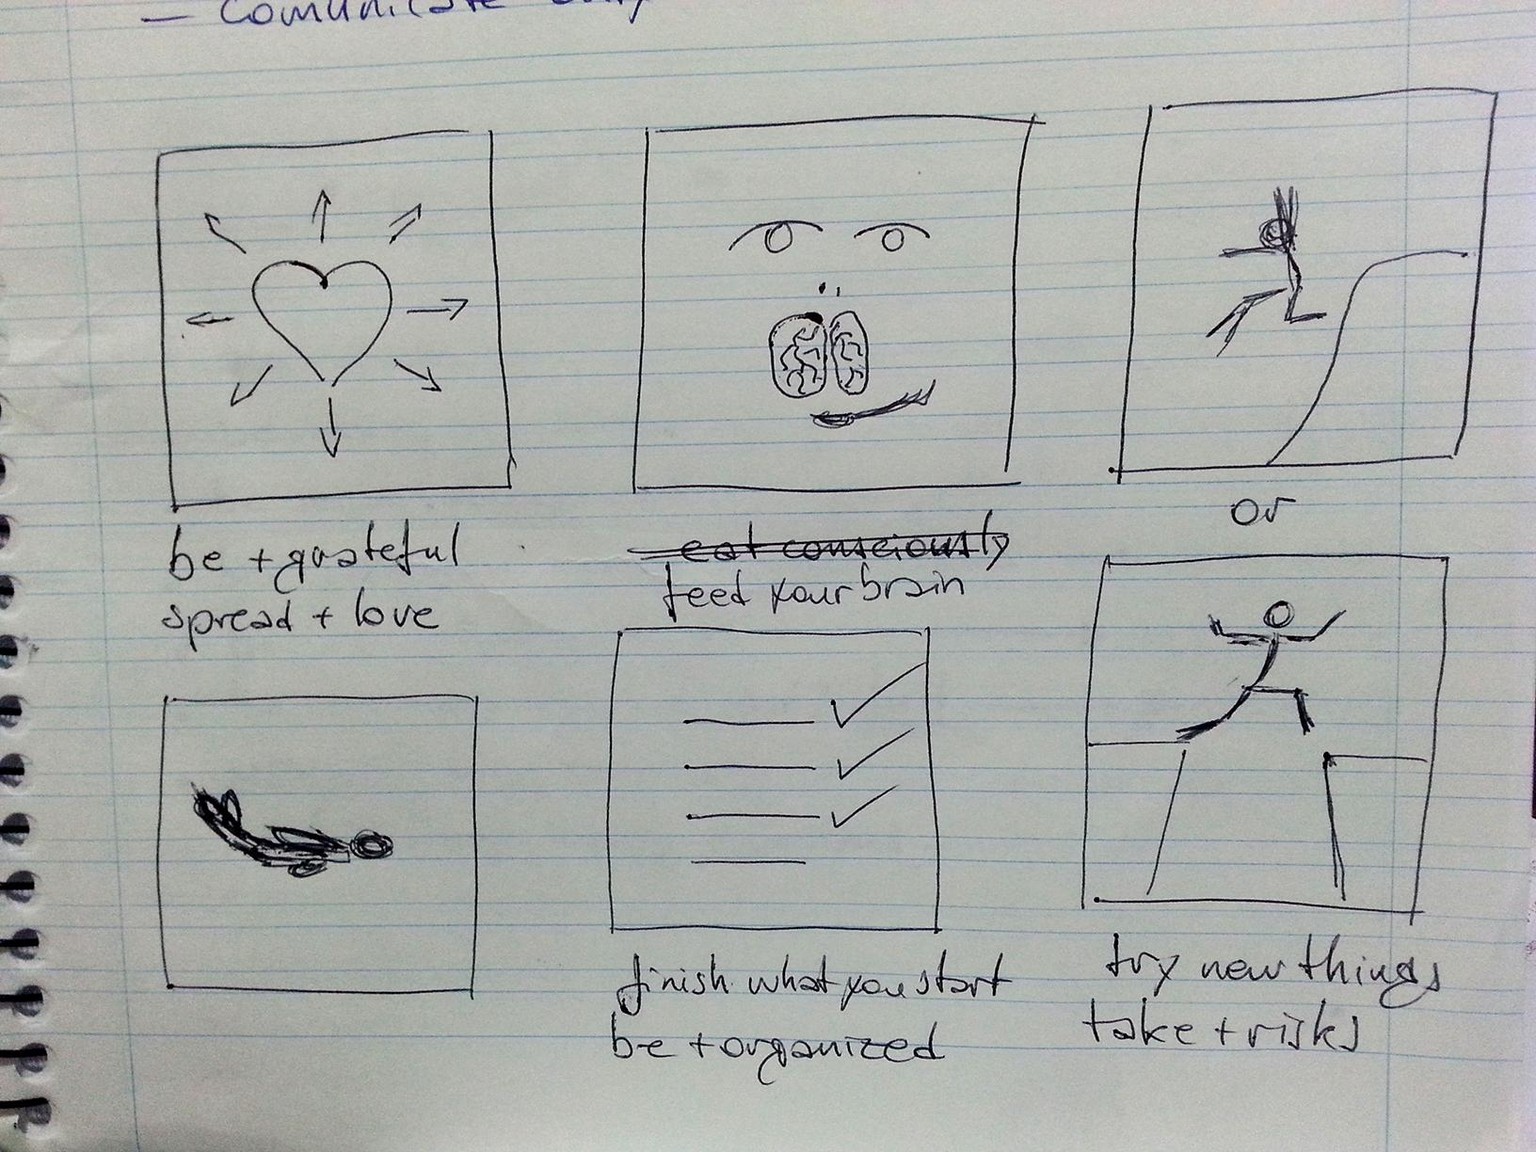 — Comunicate
be + grateful
spread + love
eat consciously
feed your brain
or
finish what you start
be + organized
try new things
take + risks